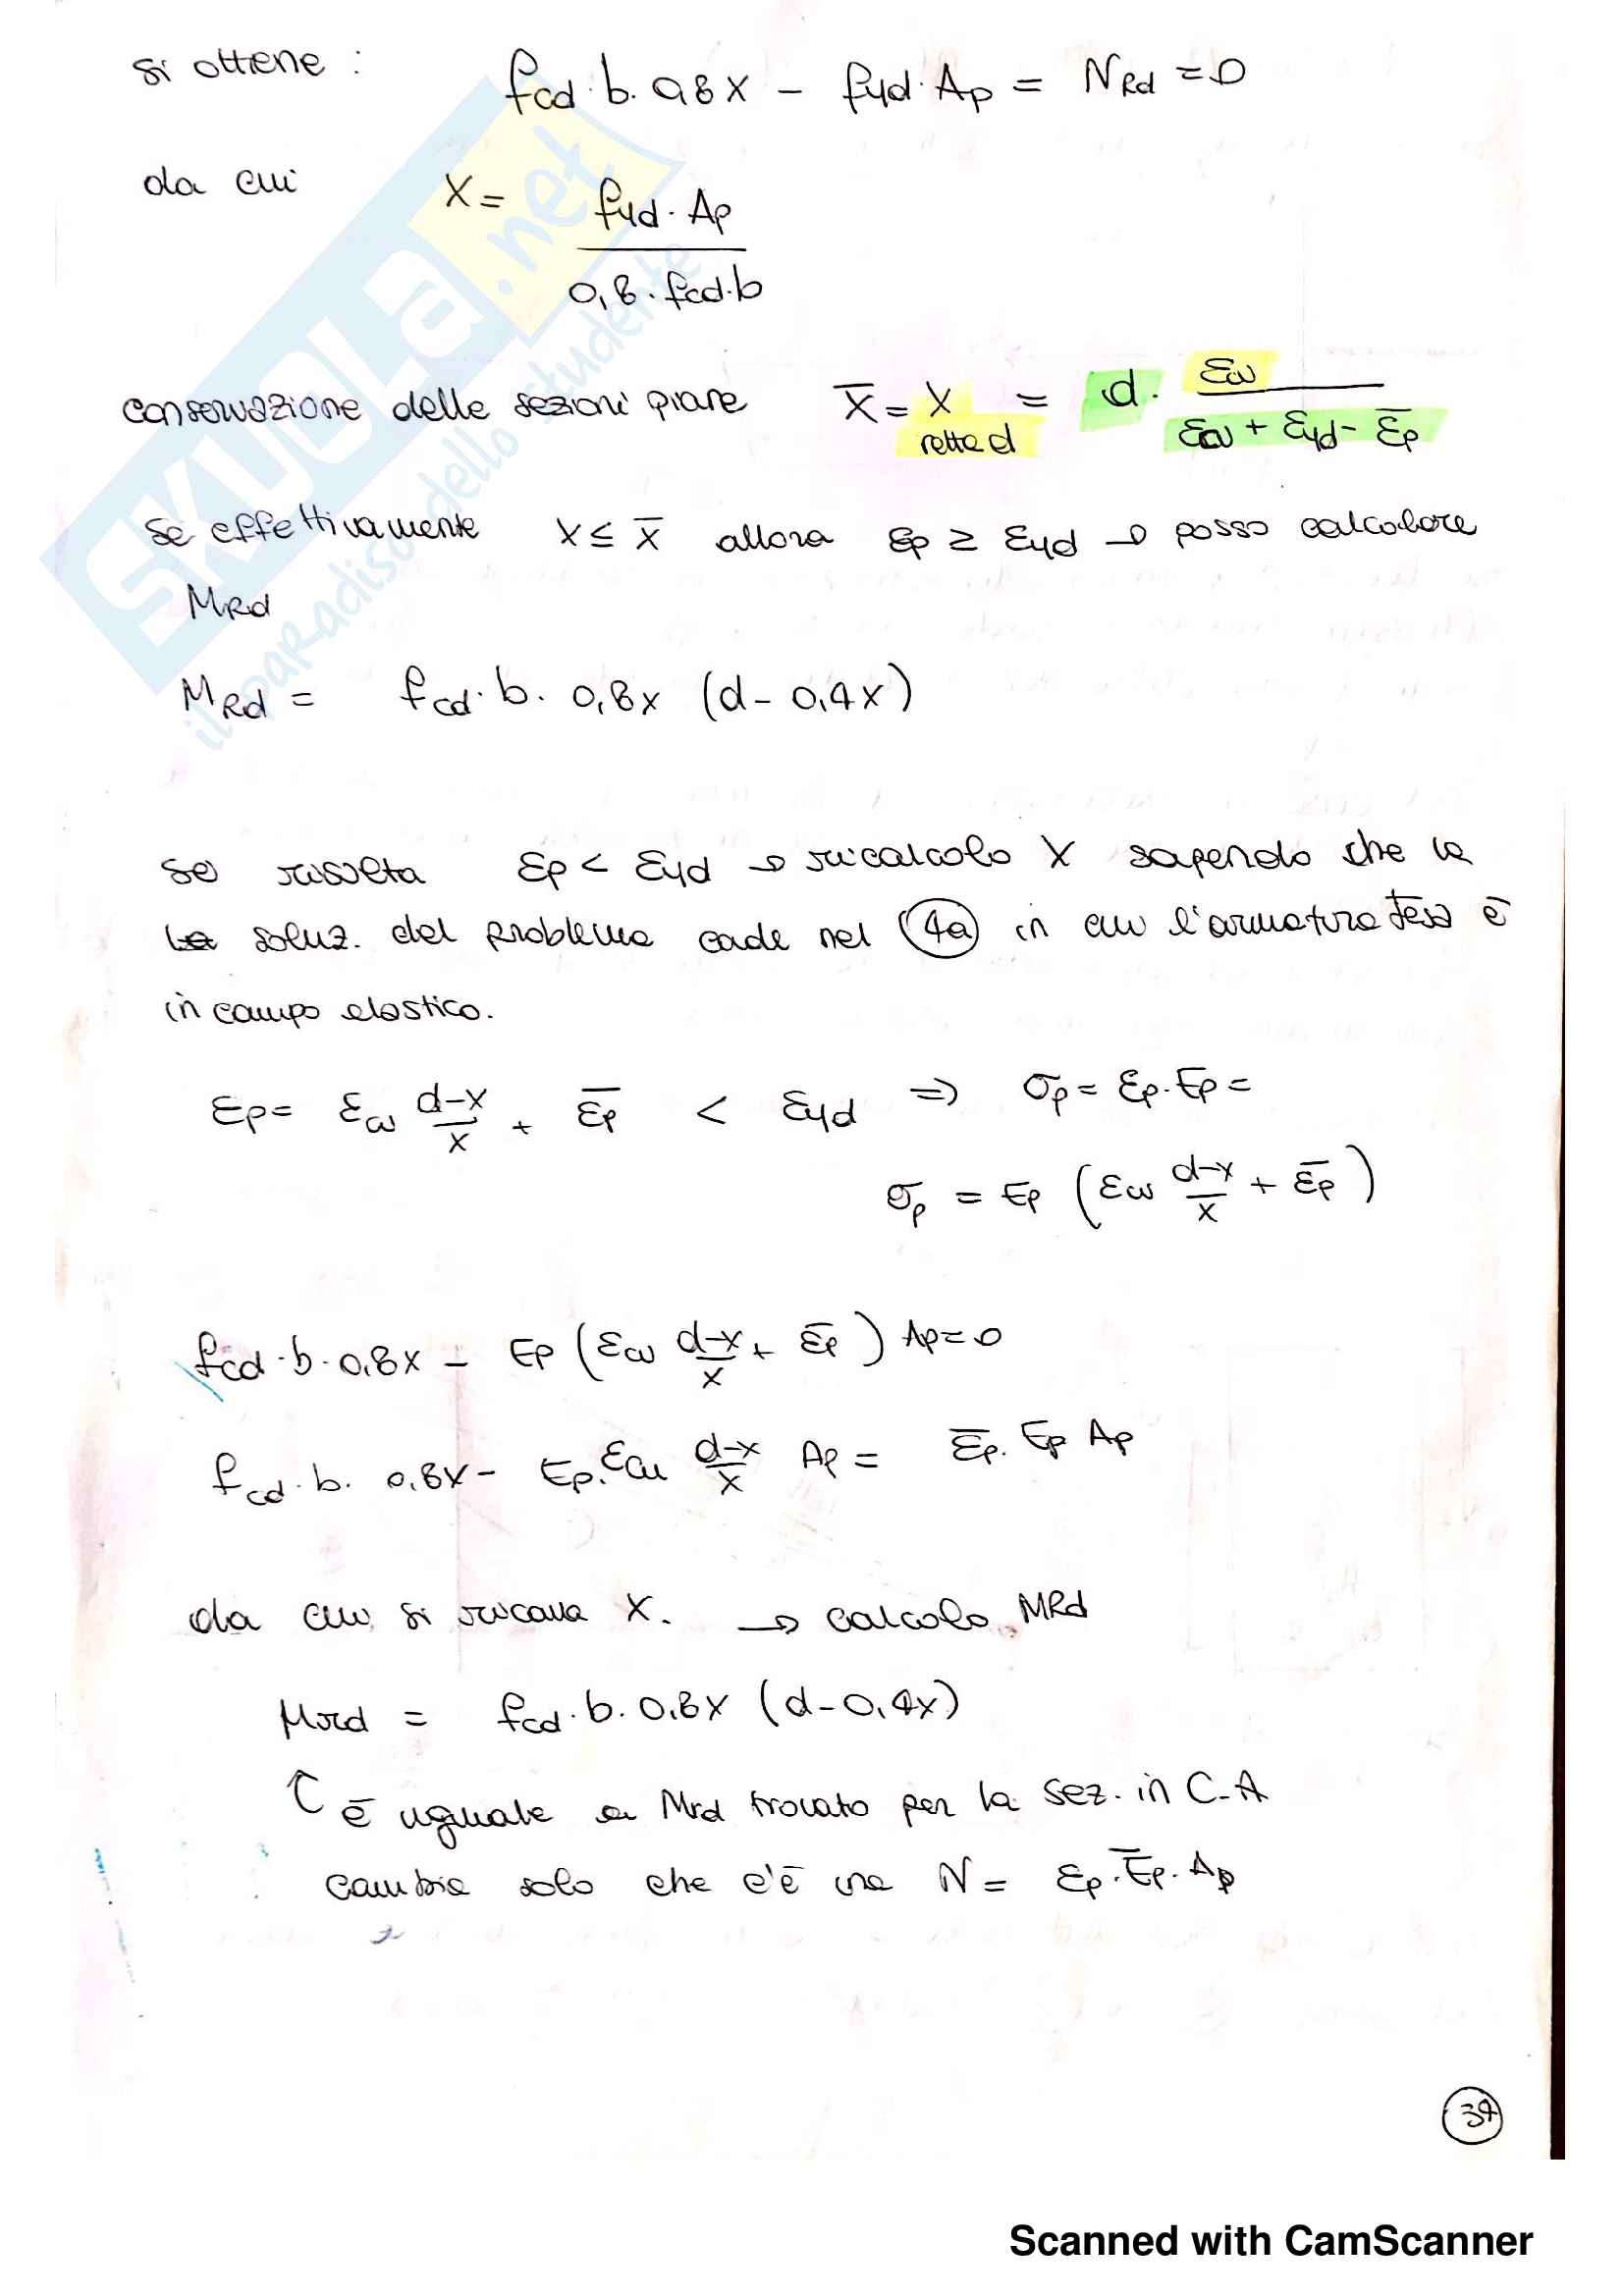 si ottiene : fcd · b · 0,8x − fyd · Ap = NRd = 0
da cui x = fyd · Ap / 0,8 · fcd · b
conservazione delle sezioni piane x̄ = x retta d = d · εcu / εcu + εyd − ε̄p
se effettivamente x ≤ x̄ allora εp ≥ εyd → posso calcolare
MRd
MRd = fcd · b · 0,8x (d − 0,4x)
se risulta εp < εyd → ricalcolo x sapendo che la
soluz. del problema cade nel 4a in cui l'armatura tesa è
in campo elastico.
εp = εcu d−x/x + ε̄p < εyd ⇒ σp = εp · Ep =
σp = Ep (εcu d−x/x + ε̄p)
fcd · b · 0,8x − Ep (εcu d−x/x + ε̄p) Ap = 0
fcd · b · 0,8x − Ep · εcu d−x/x Ap = ε̄p · Ep Ap
da cui si ricava x. → calcolo MRd
Mrd = fcd · b · 0,8x (d − 0,4x)
↑ è uguale a Mrd trovato per la sez. in C.A
cambia solo che c'è una N = εp · Ep · Ap
37
SKUOLA.net
il paradiso dello studente
Scanned with CamScanner